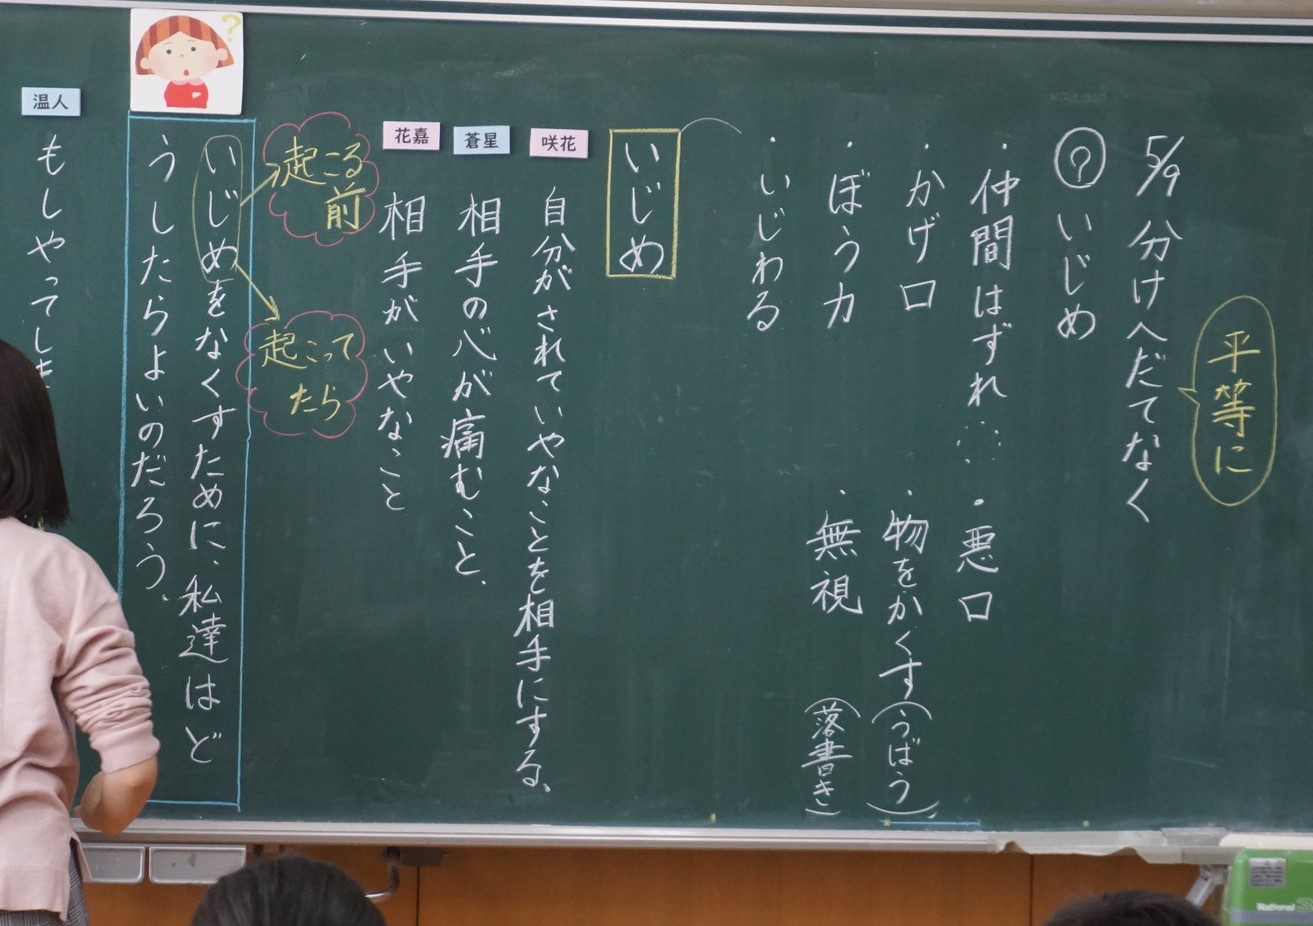 平等に
5/9 分けへだてなく
？いじめ
・仲間はずれ
・悪口
・かげ口
・物をかくす(うばう)
・ぼう力
・無視(落書き)
・いじわる
いじめ
咲花
自分がされていやなことを相手にする、
蒼星
相手の心が痛むこと、
花嘉
相手がいやなこと
起こる
前
起こって
たら
いじめをなくすために、私達はど
うしたらよいのだろう、
温人
もしやってしま
National
?